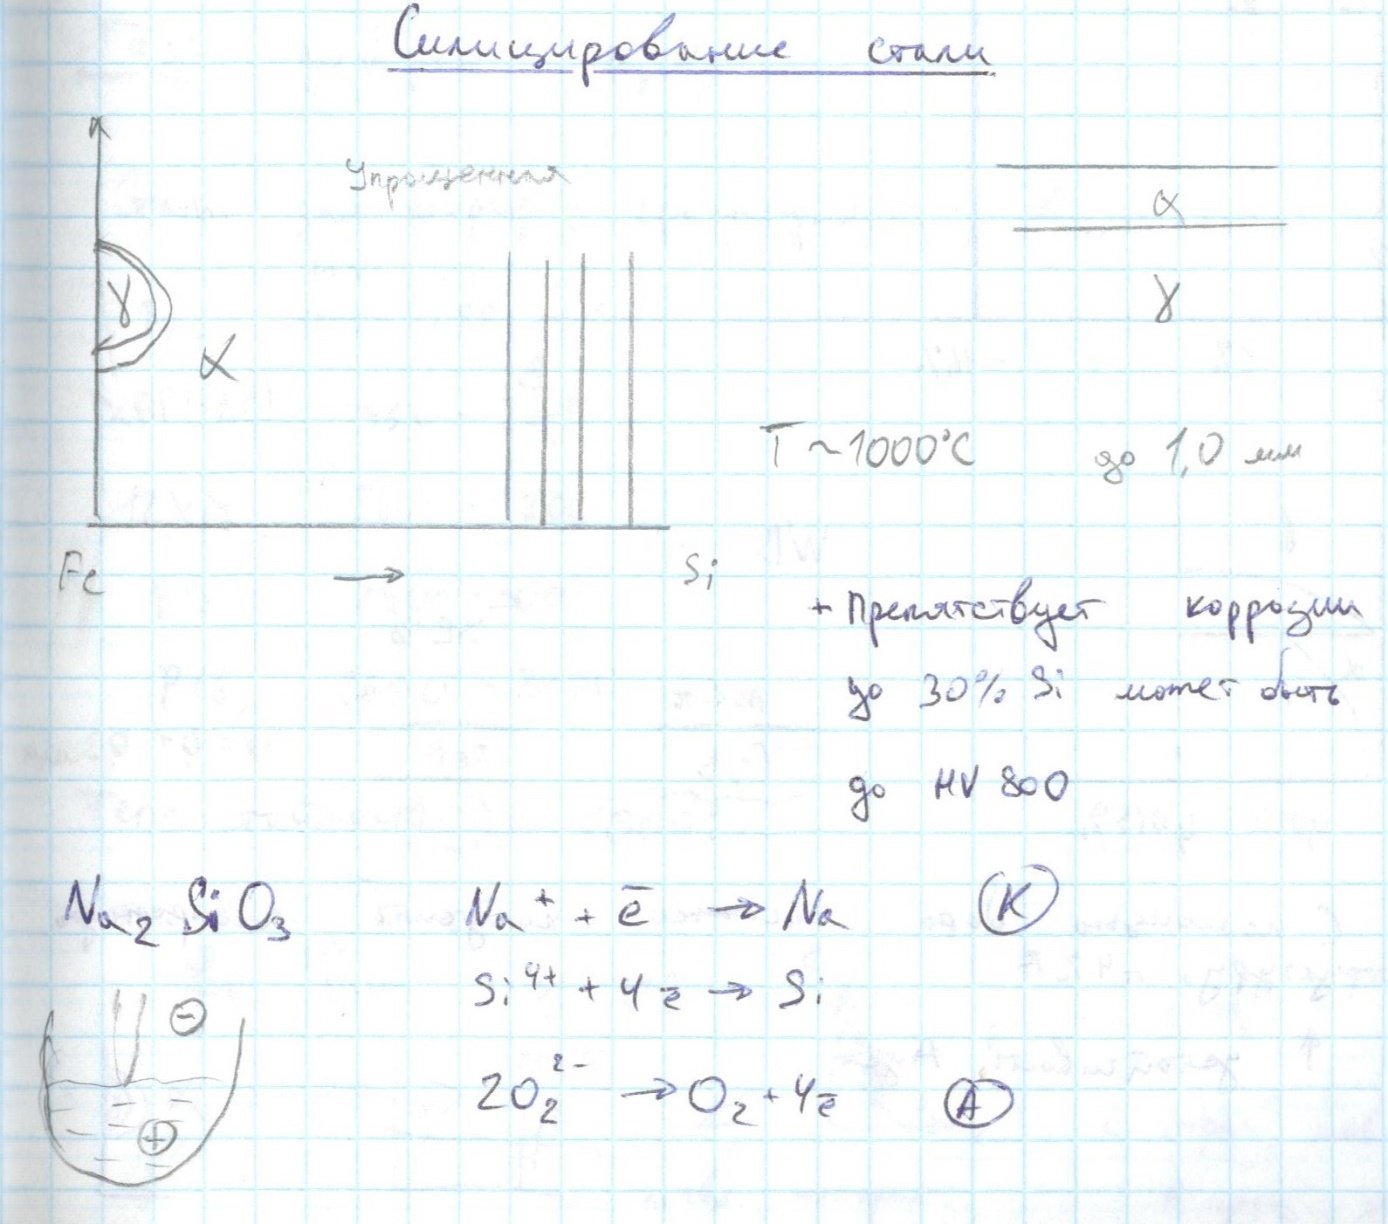 Силицирование стали
Упрощенная
α
γ
γ
α
T ~1000°C до 1,0 мм
Fe → Si
+ Препятствует коррозии
до 30% Si может быть
до HV 800
Na₂SiO₃ Na⁺ + ē → Na (K)
Si⁴⁺ + 4ē → Si
2O₂²⁻ → O₂ + 4ē (A)
⊖
⊕